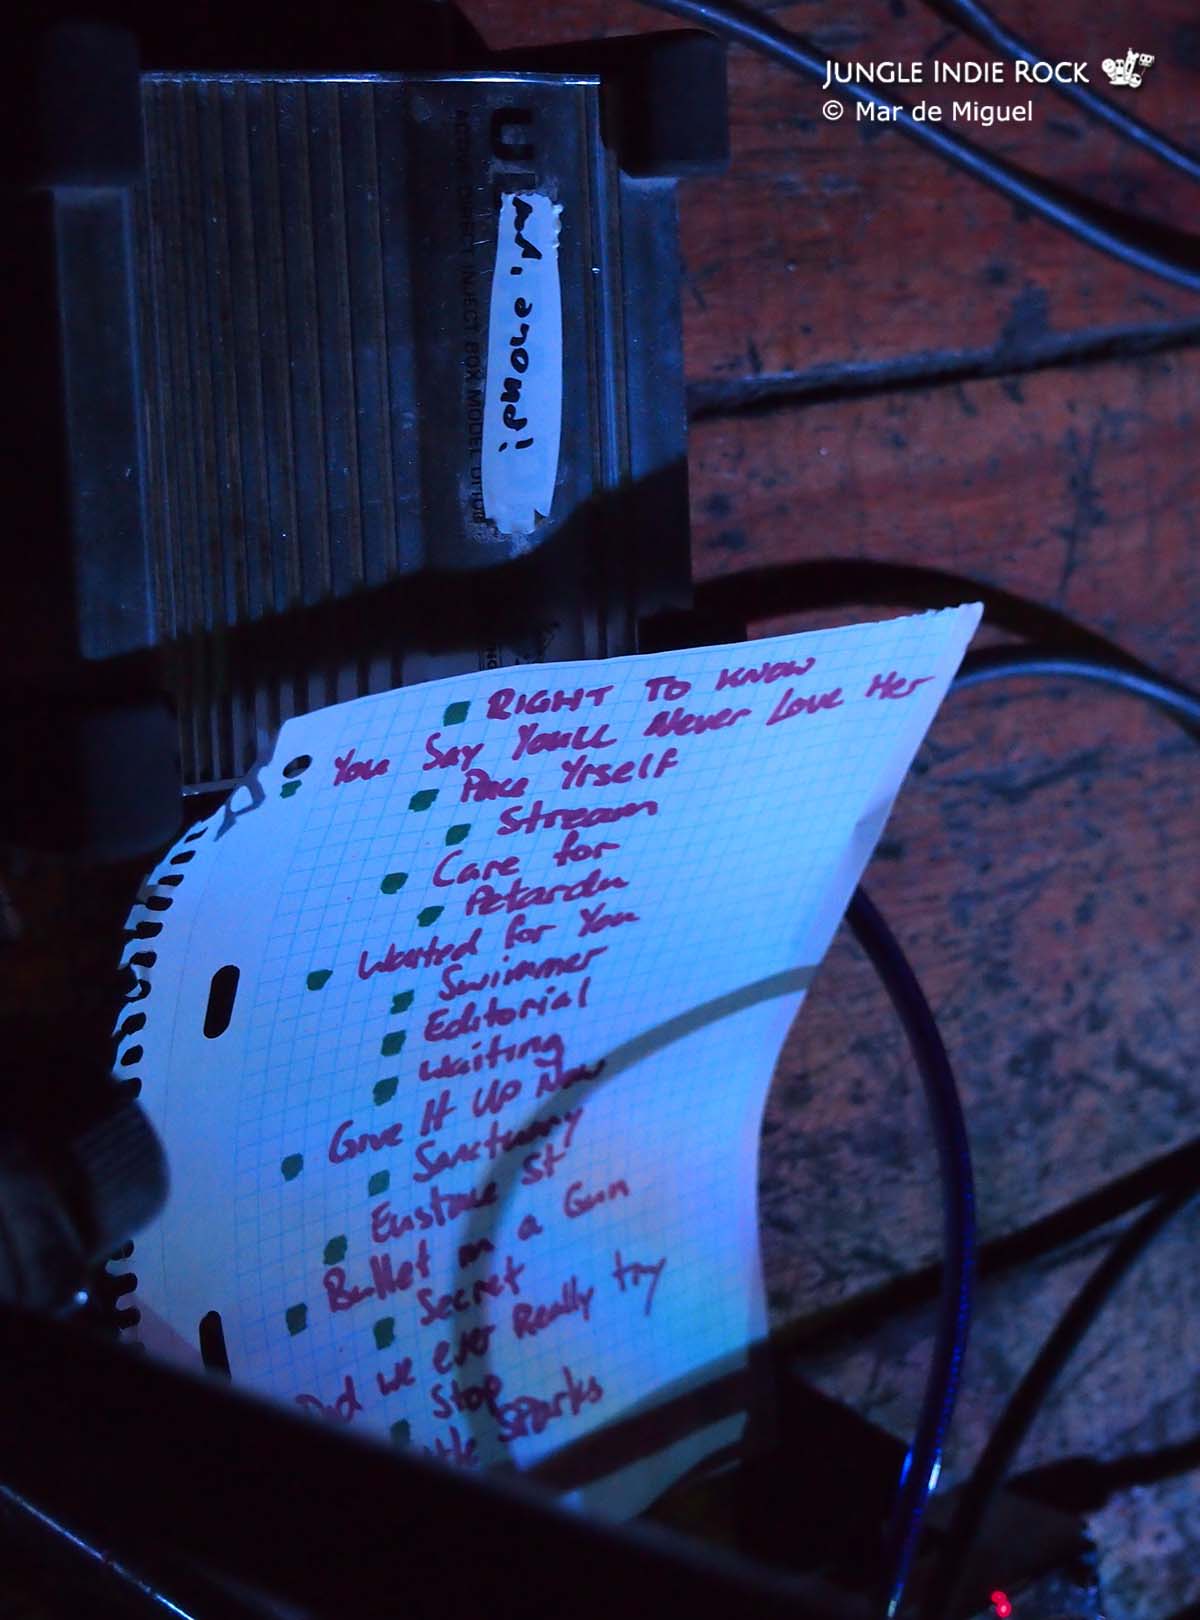 JUNGLE INDIE ROCK
© Mar de Miguel
iphone
DIRECT INJECT BOX MODEL
RIGHT TO KNOW
You Say Youll Never Love Her
Pace Yrself
Stream
Care for
Petardu
Waited for You
Swimmer
Editorial
Waiting
Give It Up Now
Sanctuary
Eustace St
Bullet in a Gun
Secret
Did we ever Really try
Stop
Sparks